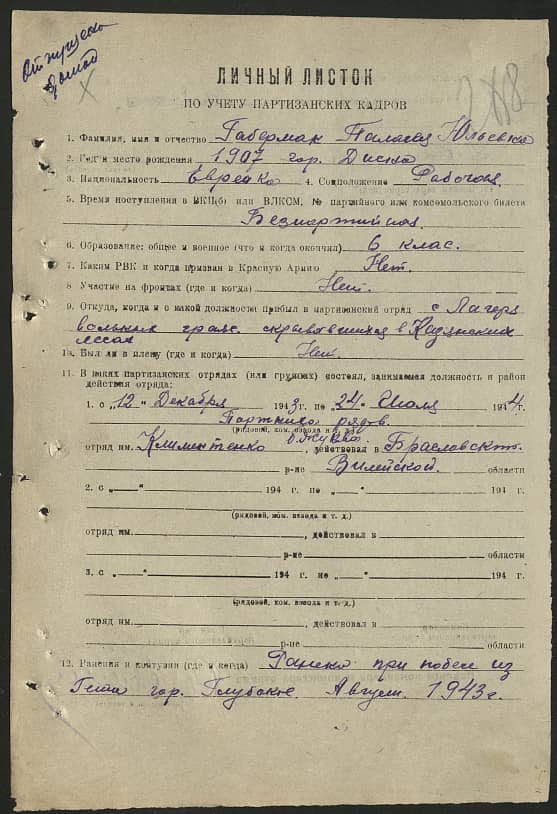 Отпущена
домой
ЛИЧНЫЙ ЛИСТОК
ПО УЧЕТУ ПАРТИЗАНСКИХ КАДРОВ
1. Фамилия, имя и отчество Габерман Юльевна
2. Год и место рождения 1907 гор. Дисна
3. Национальность Еврейка 4. Соцположение Рабочая.
5. Время поступления в ВКП(б) или ВЛКСМ, № партийного или комсомольского билета
Безпартийная.
6. Образование: общее и военное (что и когда окончил) 6 клас.
7. Каким РВК и когда призван в Красную Армию Нет.
8 Участие на фронтах (где и когда) Нет.
9. Откуда, когда и с какой должности прибыл в партизанский отряд с Лагеря
вольных гражд. скрывавшихся в Казянских
лесах
10. Был ли в плену (где и когда) Нет.
11. В каких партизанских отрядах (или группах) состоял, занимаемая должность и район
действия отряда:
1. с "12" Декабря 1943 г. по "24" Июля 1944 г.
Портниха рядов.
(рядовой, ком. взвода и т. д.)
отряд им. Климентенко б. Жукова, действовал в Браславском
р-не Вилейской. области
2. с „—“ 194 г по „—“ 194 г
(рядовой, ком. взвода и т. д.)
отряд им. , действовал в
р-не области
3. с „—“ 194 г по „—“ 194 г.
(рядовой, ком. взвода и т. д.)
отряд им. , действовал в
р-не области
12. Ранения и контузии (где и когда) Ранена при побеге из
Гетта гор. Глубокое. Август. 1943 г.